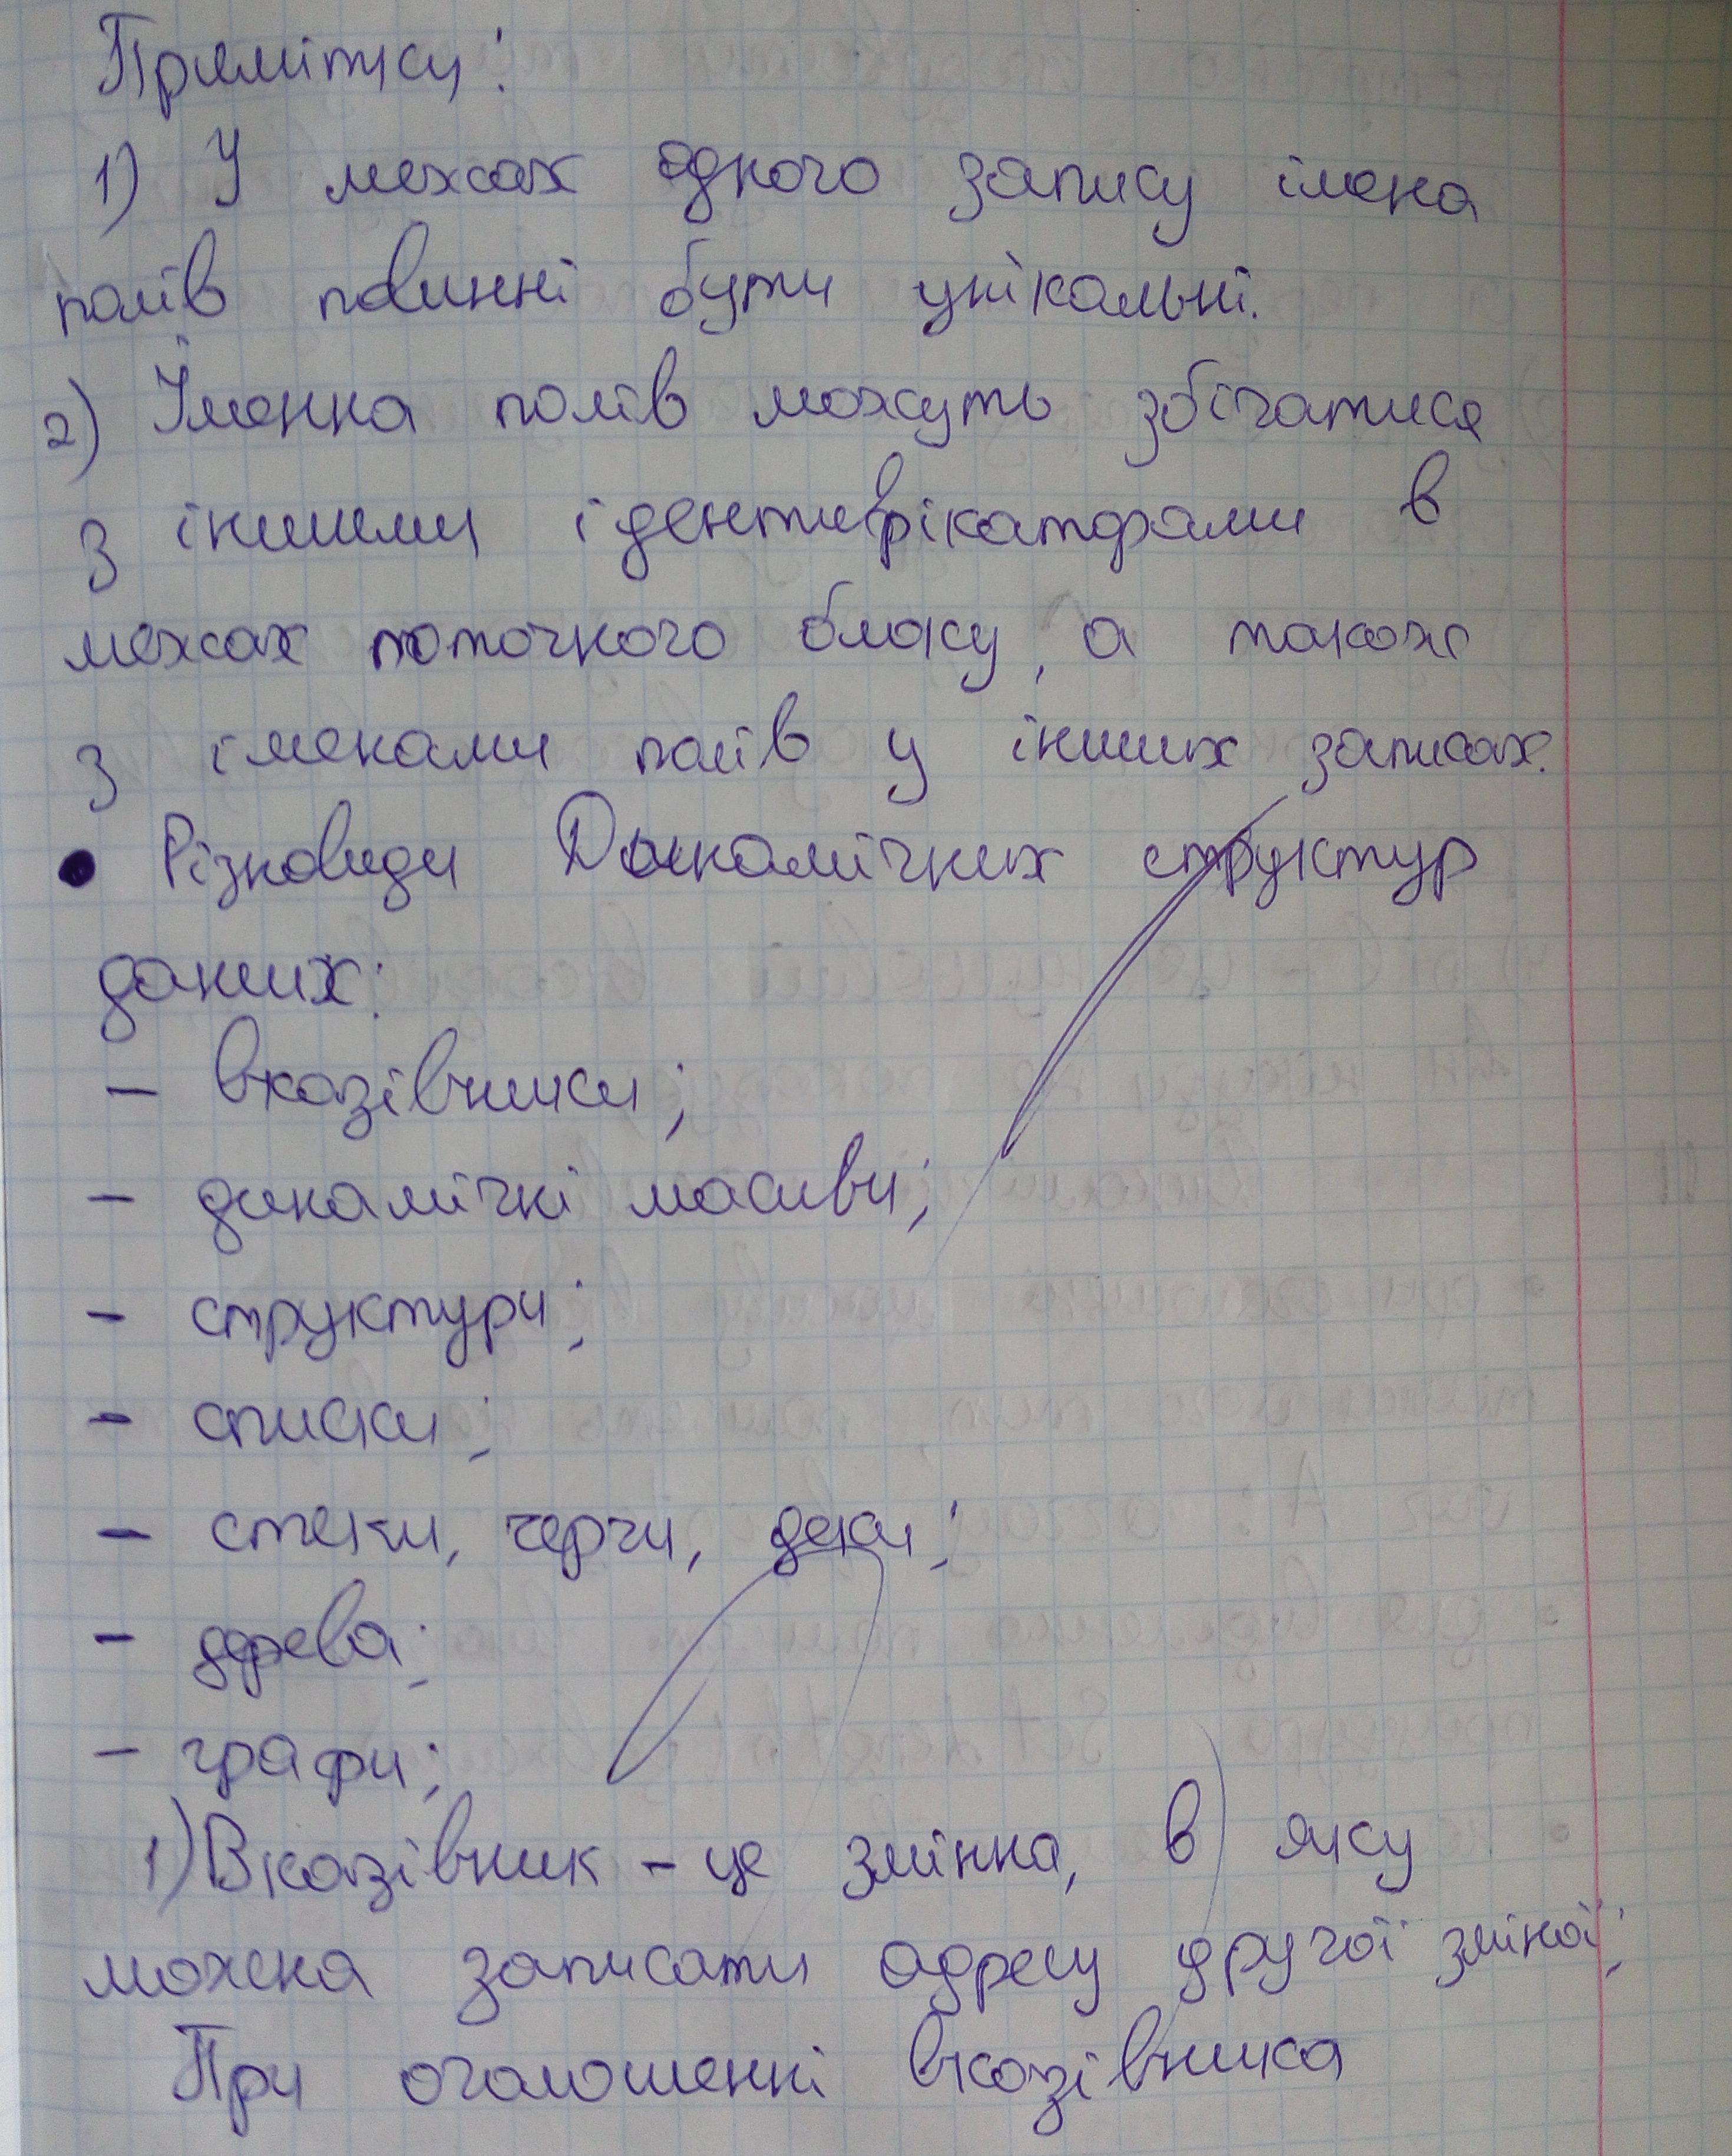 Примітки:
1) У межах одного запису імена
полів повинні бути унікальні.
2) Іменна полів можуть збігатися
з іншими ідентифікаторами в
межах поточного блоку, а також
з іменами полів у інших записах.
• Різновиди Динамічних структур
даних:
– вказівники;
– динамічні масиви;
– структури;
– списки;
– стеки, черги, деки;
– дерева;
– графи;
1) Вказівник – це змінна, в яку
можна записати адресу другої зміної;
При оголошенні вказівника